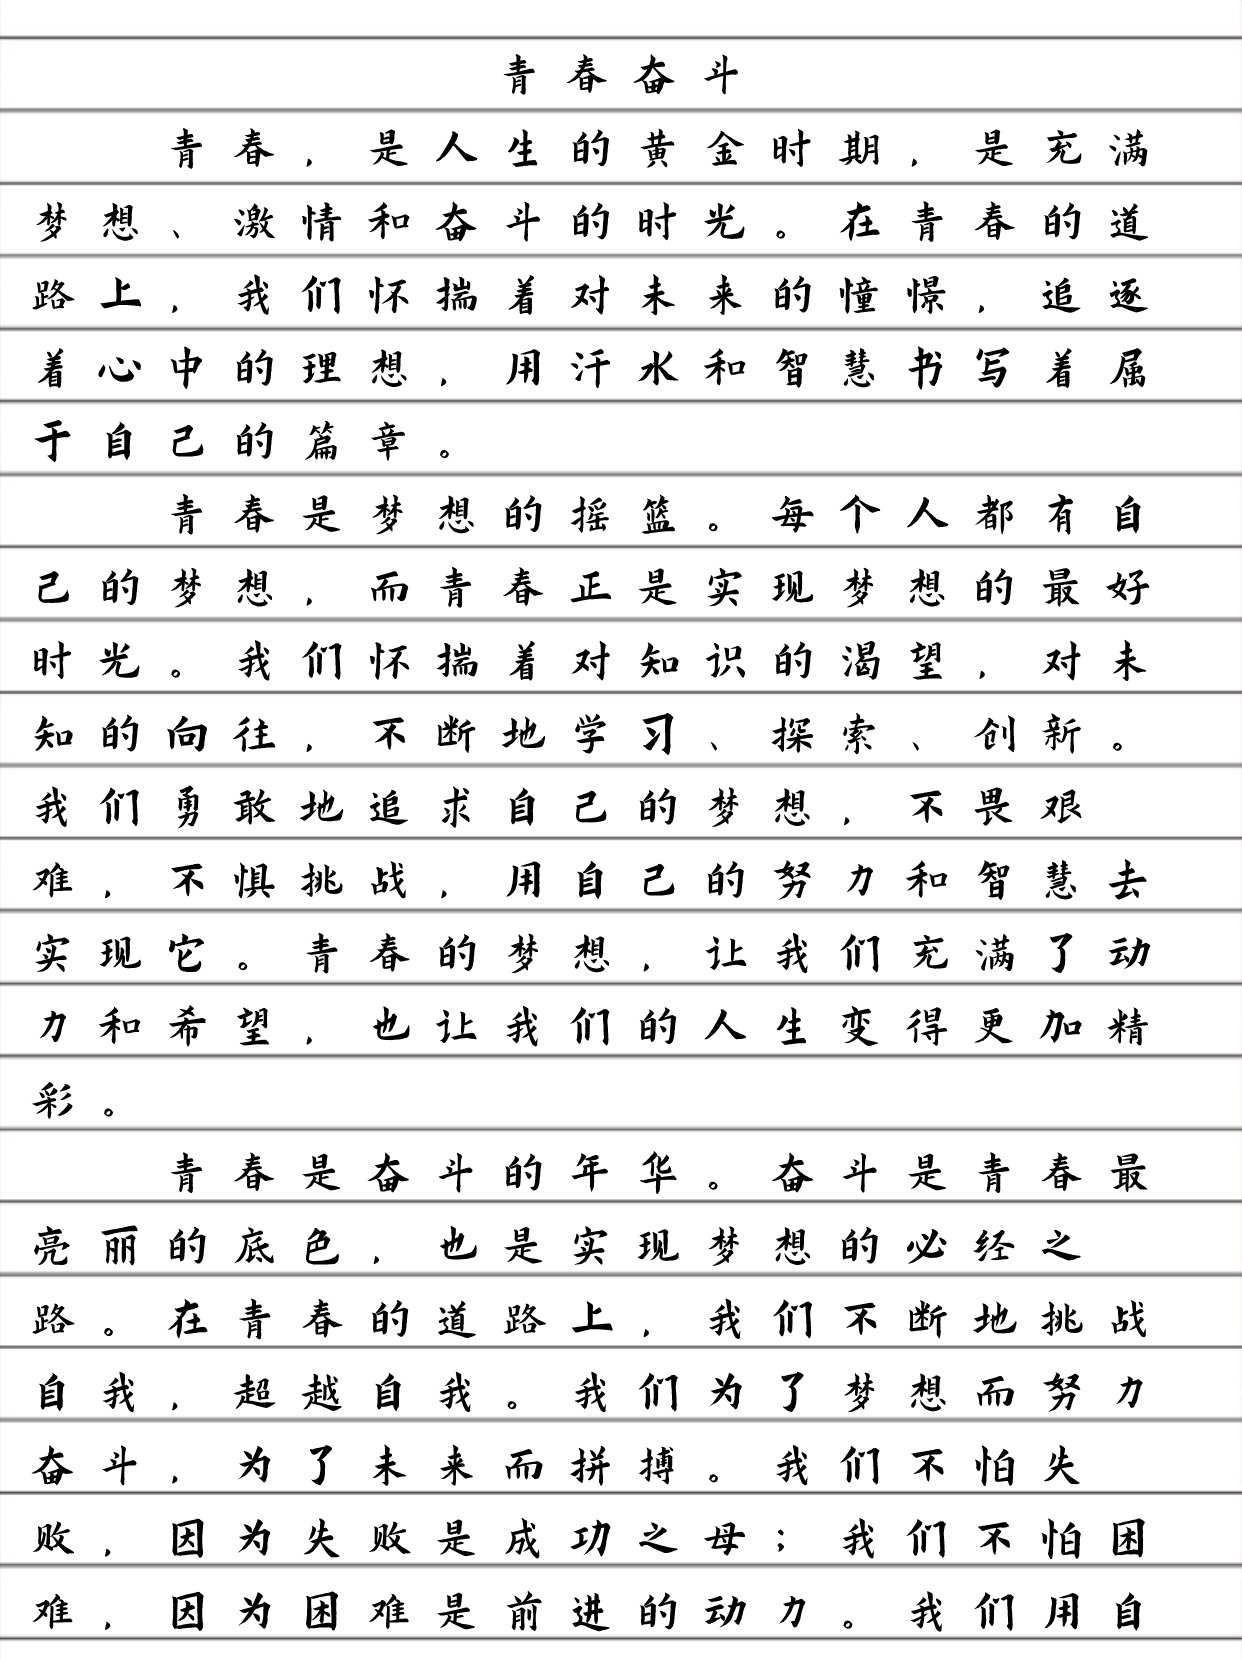 青春奋斗
青春，是人生的黄金时期，是充满
梦想、激情和奋斗的时光。在青春的道
路上，我们怀揣着对未来的憧憬，追逐
着心中的理想，用汗水和智慧书写着属
于自己的篇章。
青春是梦想的摇篮。每个人都有自
己的梦想，而青春正是实现梦想的最好
时光。我们怀揣着对知识的渴望，对未
知的向往，不断地学习、探索、创新。
我们勇敢地追求自己的梦想，不畏艰
难，不惧挑战，用自己的努力和智慧去
实现它。青春的梦想，让我们充满了动
力和希望，也让我们的人生变得更加精
彩。
青春是奋斗的年华。奋斗是青春最
亮丽的底色，也是实现梦想的必经之
路。在青春的道路上，我们不断地挑战
自我，超越自我。我们为了梦想而努力
奋斗，为了未来而拼搏。我们不怕失
败，因为失败是成功之母；我们不怕困
难，因为困难是前进的动力。我们用自